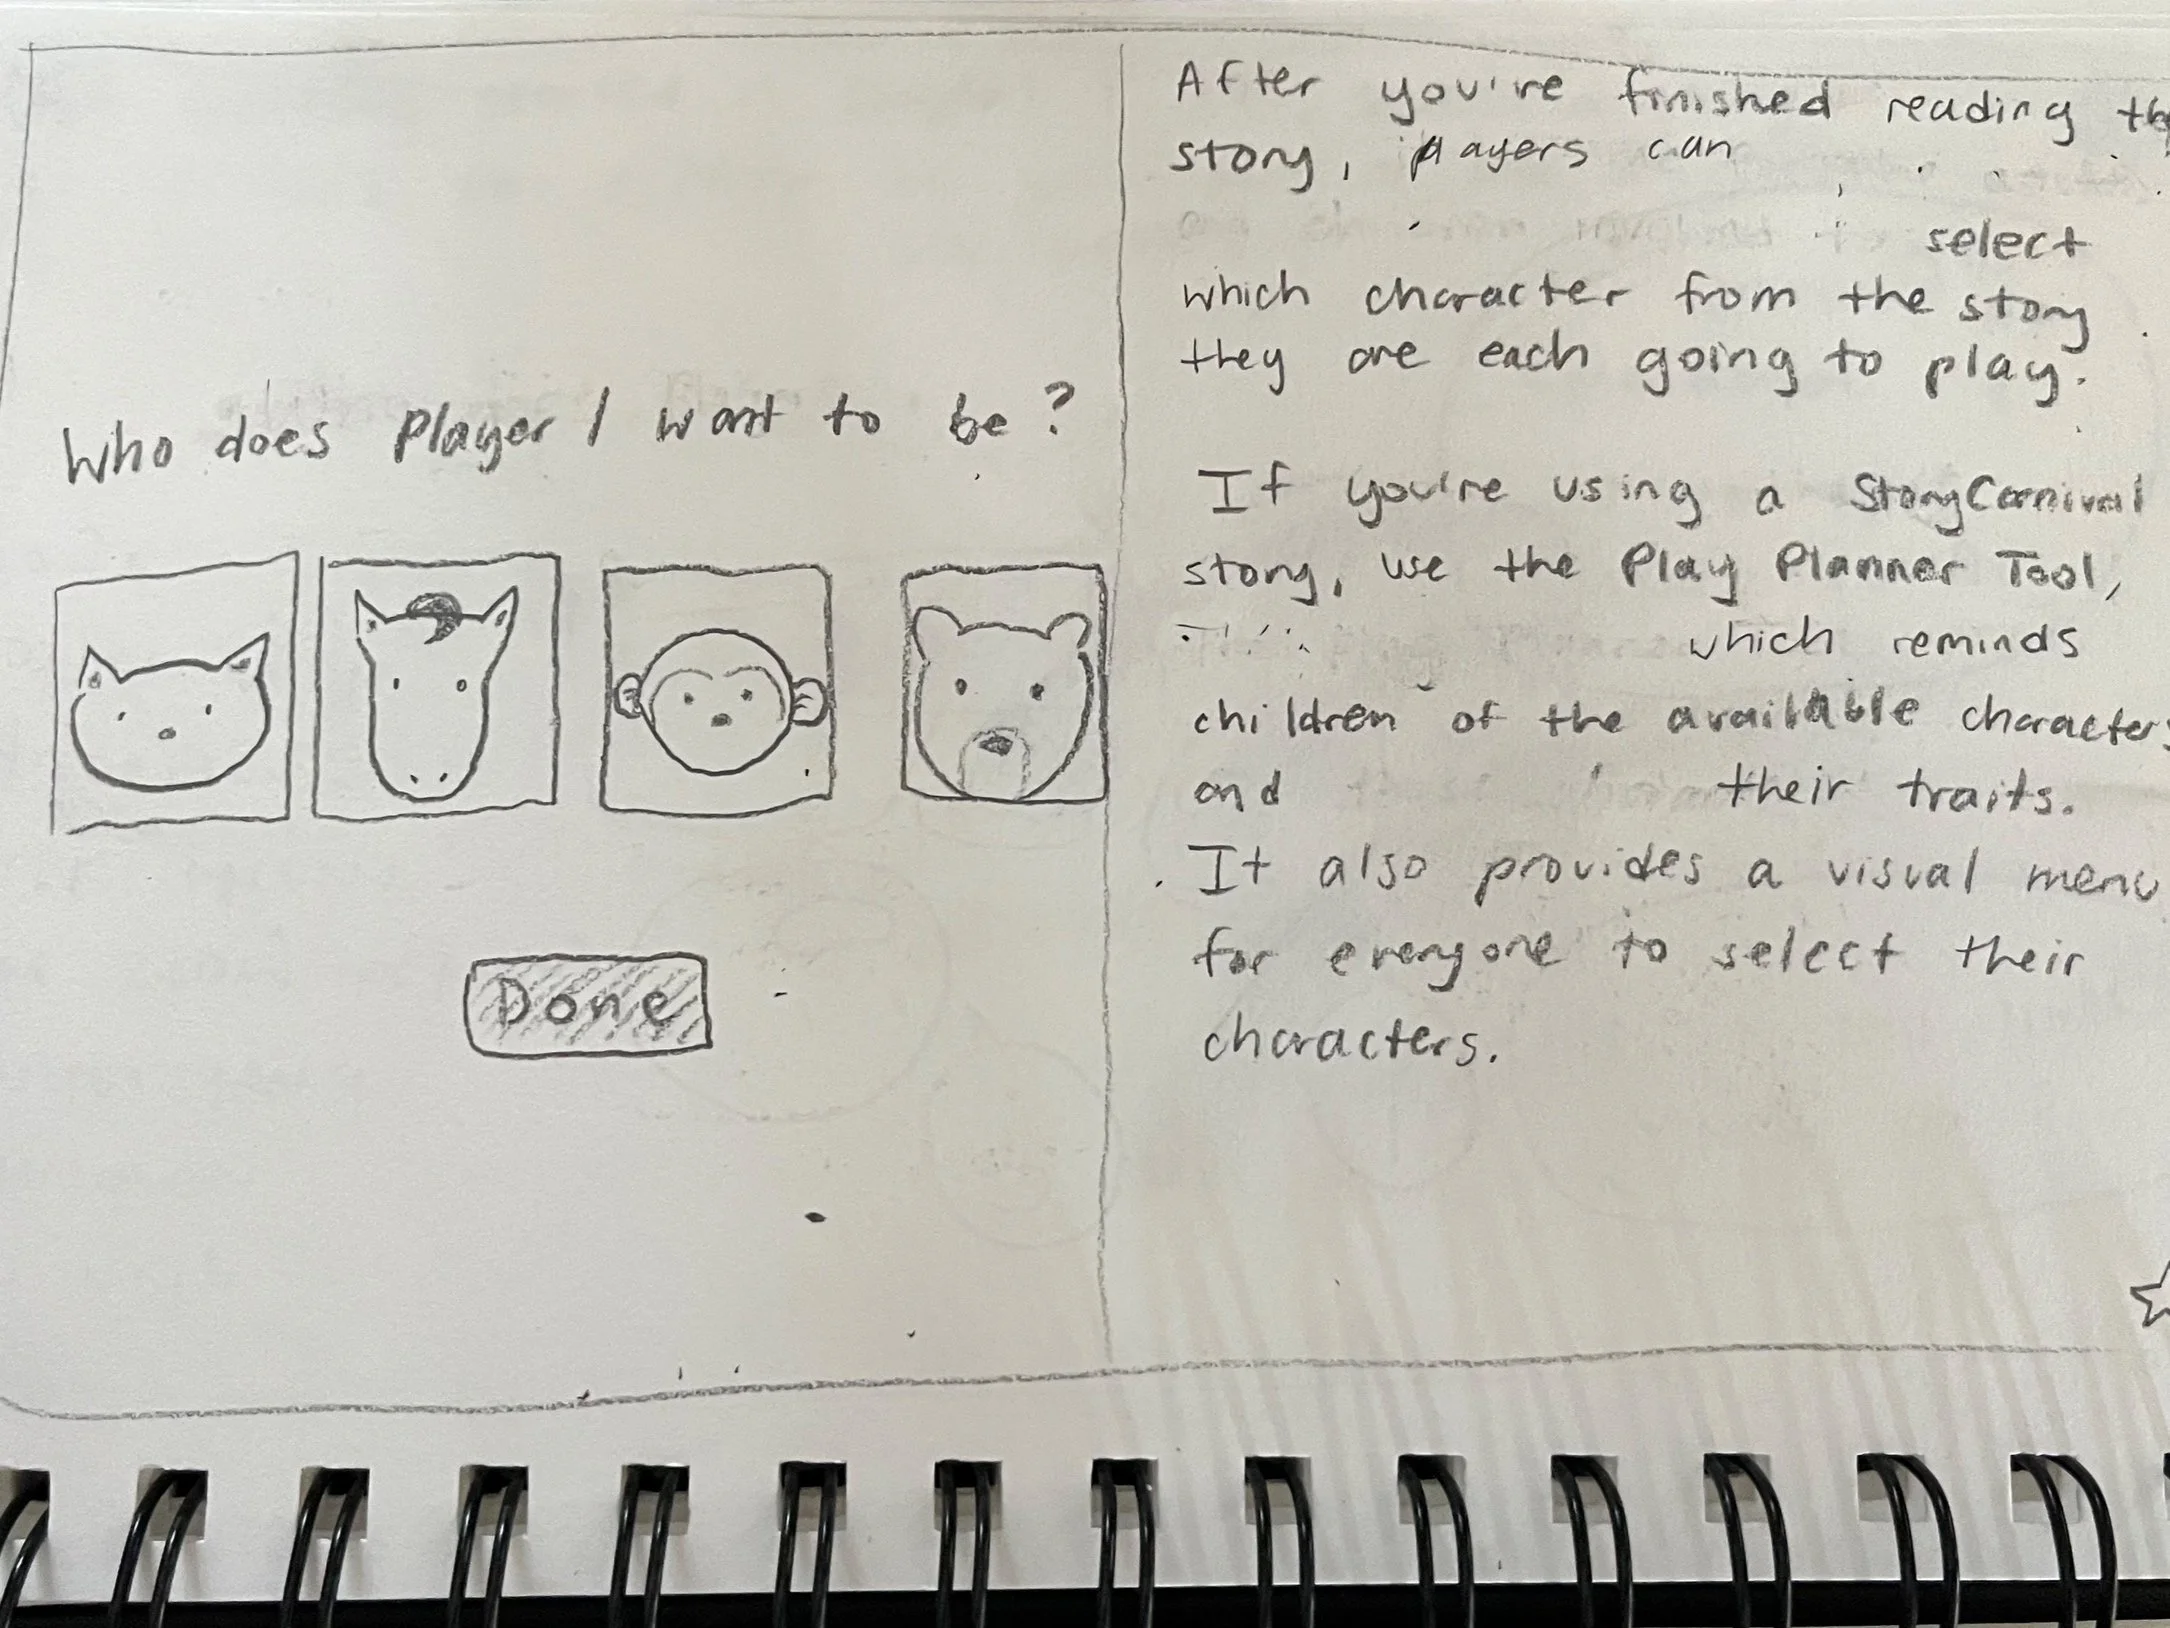 Who does Player 1 want to be?
Done
After you're finished reading the
story, players can
select
which character from the story
they are each going to play.
If you're using a StoryCarnival
story, use the Play Planner Tool,
which reminds
children of the available characters
and their traits.
It also provides a visual menu
for everyone to select their
characters.